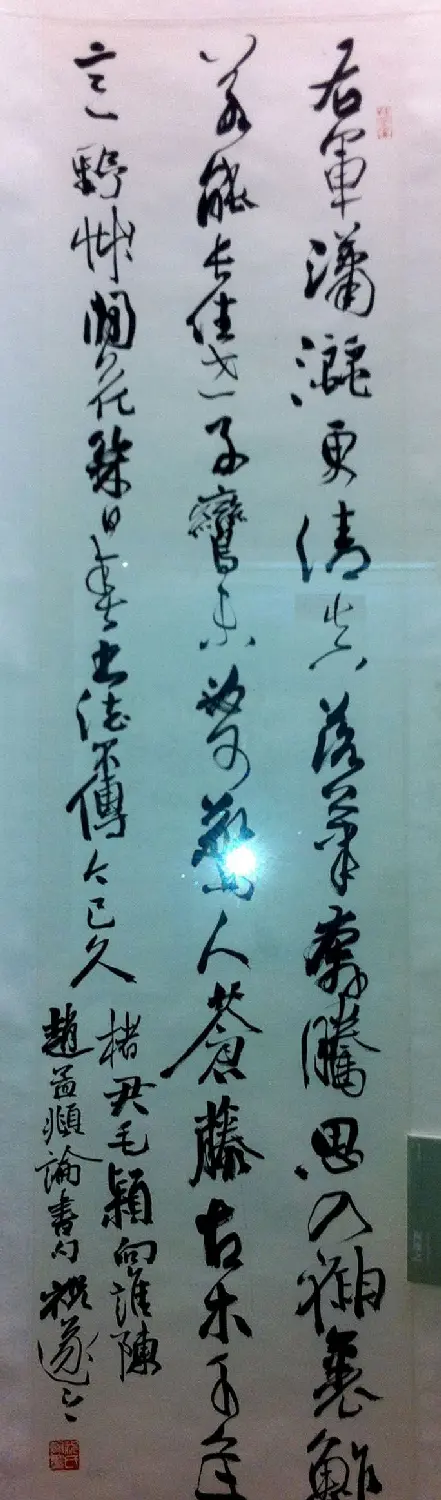 右軍瀟灑更清真落筆奔騰思入神裹鮓
若能長住世子鸞未必可驚人蒼藤古木千年
意野艸閒花幾日春書法不傳今已久
楮君毛穎向誰陳
趙孟頫論書句